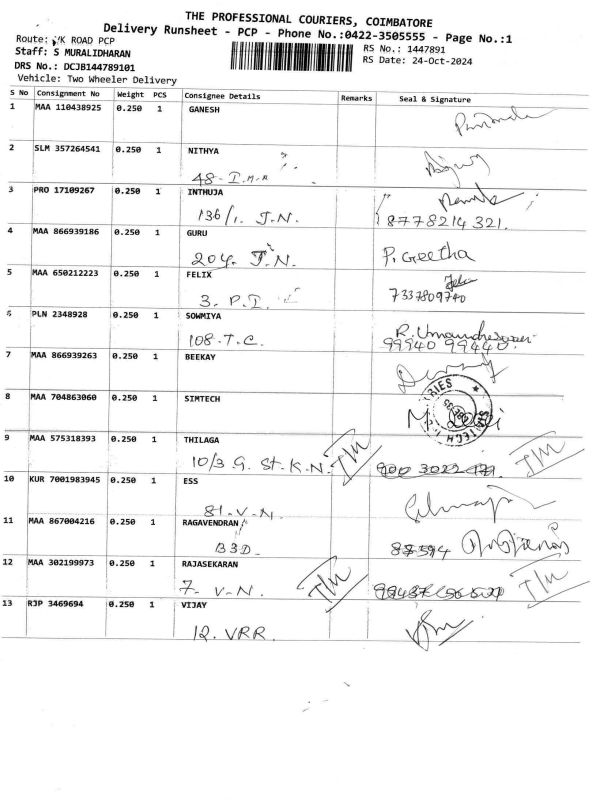 THE PROFESSIONAL COURIERS, COIMBATORE
Delivery Runsheet - PCP - Phone No.:0422-3505555 - Page No.:1
Route: VK ROAD PCP
Staff: S MURALIDHARAN
RS No.: 1447891
DRS No.: DCJB144789101
RS Date: 24-Oct-2024
Vehicle: Two Wheeler Delivery
S No Consignment No Weight PCS Consignee Details Remarks Seal & Signature
1 MAA 110438925 0.250 1 GANESH
2 SLM 357264541 0.250 1 NITHYA
48-I.M.R
3 PRO 17109267 0.250 1 INTHUJA
136/1. J.N. 8778214 321.
4 MAA 866939186 0.250 1 GURU
204. J.N. P. Geetha
5 MAA 650212223 0.250 1 FELIX
3. P.I 7337809740
6 PLN 2348928 0.250 1 SOWMIYA
108-T.C. 99940 99440.
7 MAA 866939263 0.250 1 BEEKAY
8 MAA 704863060 0.250 1 SIMTECH
9 MAA 575318393 0.250 1 THILAGA
10/3 G. St-K.N. I/M I/M
10 KUR 7001983945 0.250 1 ESS
81-V-N.
11 MAA 867004216 0.250 1 RAGAVENDRAN
B3D-
12 MAA 302199973 0.250 1 RAJASEKARAN
7- V-N. I/M I/M
13 RJP 3469694 0.250 1 VIJAY
12. VRR.